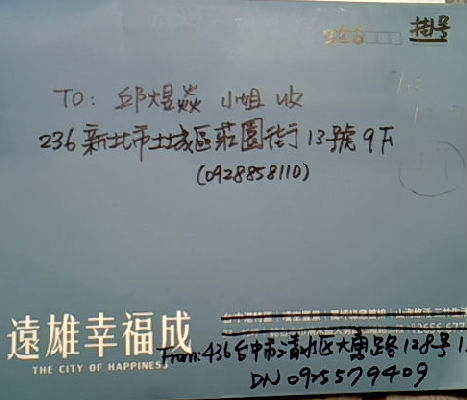 掛号
TO: 邱煜焱 小姐 收
236 新北市土城區莊園街13號9F
(0928858110)
遠雄幸福成
THE CITY OF HAPPINESS
From: 436 台中市清水區大勇路128號1
DN 0925579409